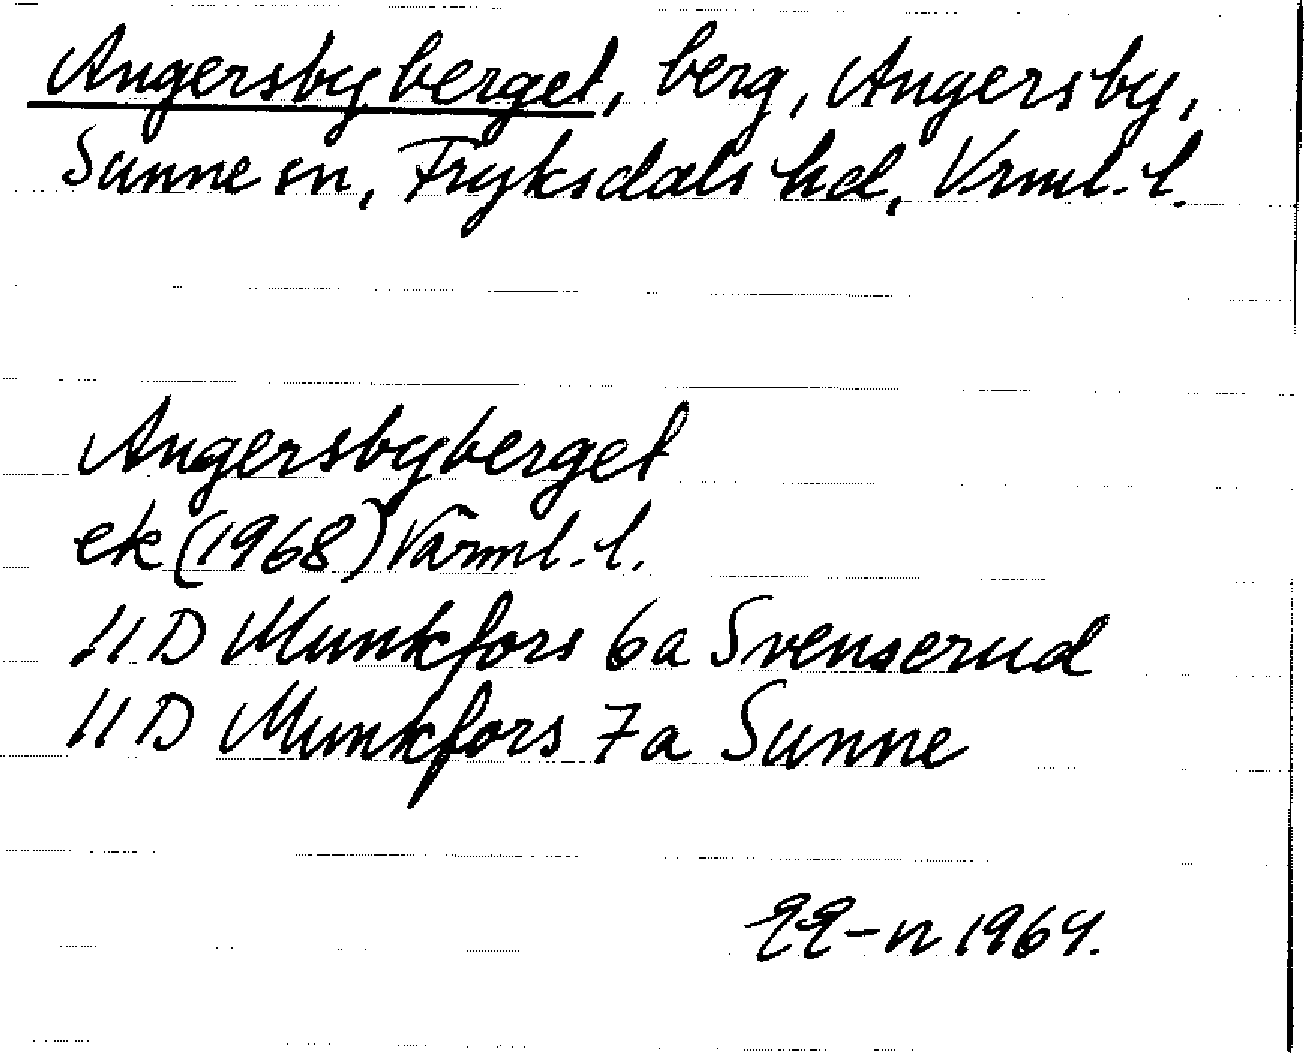 Angersbyberget, berg, Angersby,
Sunne sn, Fryksdals hd, Vrml. l.
Angersbyberget
ek (1968) Värml. l.
11 D Munkfors 6a Svenserud
11 D Munkfors 7a Sunne
1969.